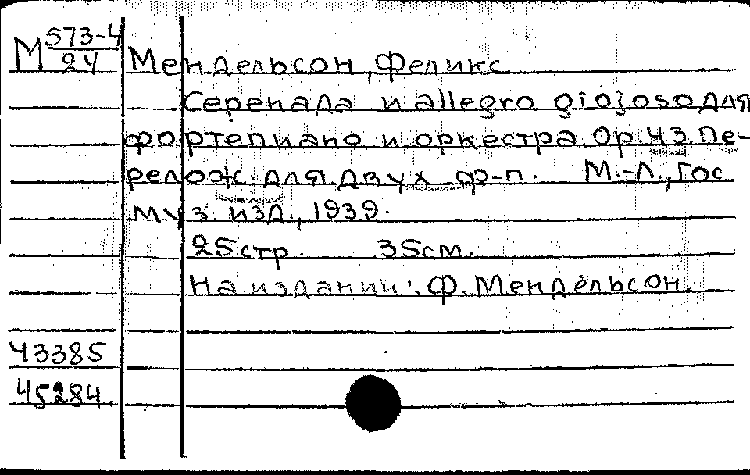 М 573-4/24 Мендельсон, Феликс
Серенада и allegro giojoso для
фортепиано и оркестра. Ор. 43. Пе-
релож. для двух ф-п. М.-Л., Гос
муз. изд., 1939.
25 стр. 35 см.
На издании: Ф. Мендельсон.
43385
45284